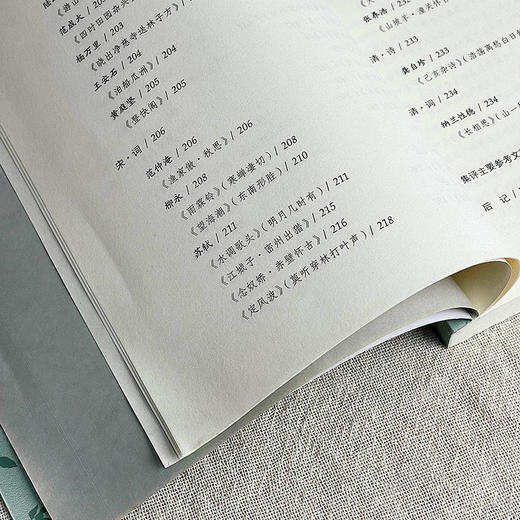 范成大 / 203
《四时田园杂兴
杨万里 / 203
《晓出净慈寺送林子方》/ 204
王安石 / 204
《泊船瓜洲》/ 205
黄庭坚 / 205
《登快阁》/ 205
宋·词 / 206
范仲淹 / 206
《渔家傲·秋思》/ 206
柳永 / 208
《雨霖铃》(寒蝉凄切) / 208
《望海潮》(东南形胜) / 210
苏轼 / 211
《水调歌头》(明月几时有) / 211
《江城子·密州出猎》/ 215
《念奴娇·赤壁怀古》/ 216
《定风波》(莫听穿林打叶声) / 218
张养浩 / 232
《山坡羊·潼关怀
清·诗 / 233
龚自珍 / 233
《己亥杂诗》(浩荡离愁白日
清·词 / 234
纳兰性德 / 234
《长相思》(山一
集评主要参考文
后记 /